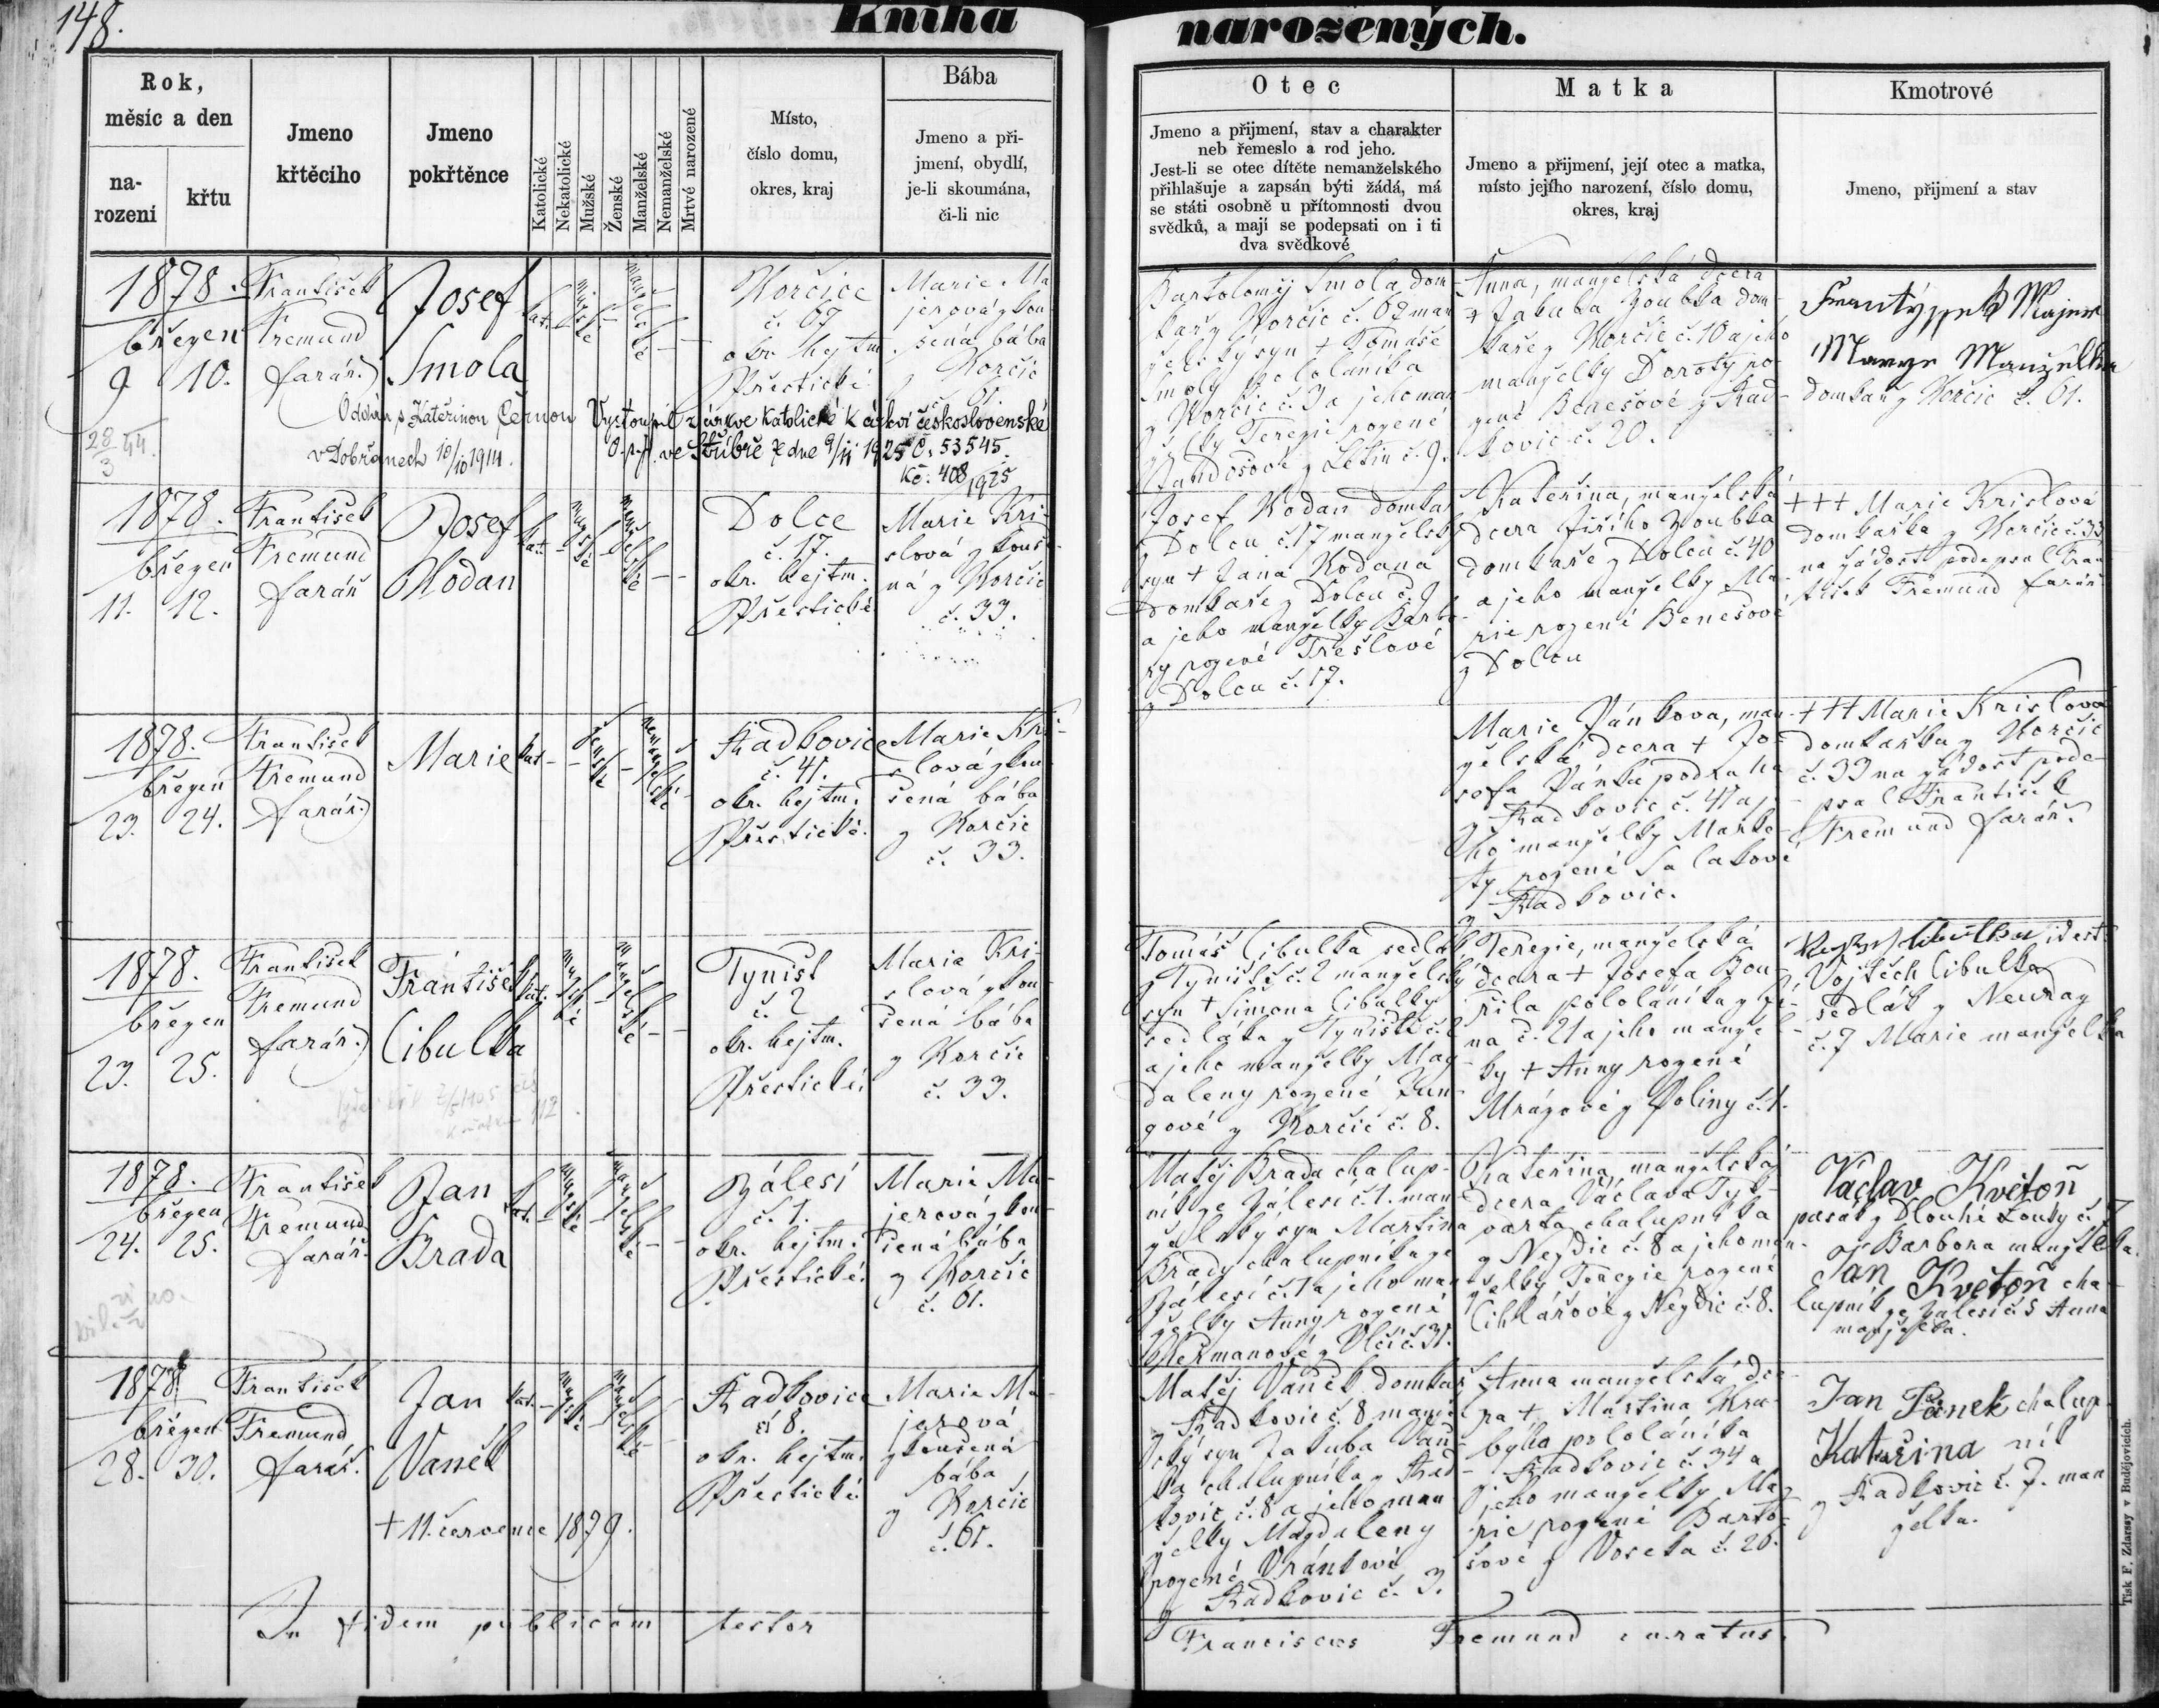 148.
Kniha narozených.
Rok,
měsíc a den
na-
rození
křtu
Jmeno
křtěcího
Jmeno
pokřtěnce
Katolické
Nekatolické
Mužské
Ženské
Manželské
Nemanželské
Mrtvé narozené
Místo,
číslo domu,
okres, kraj
Bába
Jmeno a při-
jmení, obydlí,
je-li skoumána,
či-li nic
Otec
Jmeno a přijmení, stav a charakter
neb řemeslo a rod jeho.
Jest-li se otec dítěte nemanželského
přihlašuje a zapsán býti žádá, má
se státi osobně u přítomnosti dvou
svědků, a mají se podepsati on i ti
dva svědkové
Matka
Jmeno a přijmení, její otec a matka,
místo jejího narození, číslo domu,
okres, kraj
Kmotrové
Jmeno, přijmení a stav
1878.
břez̄en
9 10.
František
Fremund
farář.
Josef
Smola
kat.
mužské
manželské
Horčice
č. 67
okr. hejtm.
Přestické
Marie Ma-
jerová zkou-
šená bába
z Horčic
č. 61.
Bartoloměj Smola dom-
kař z Horčic č. 67 man-
želský syn + Tomáše
Smoly pololáníka
z Horčic č. 3 a jeho man-
želky Terezie rozené
z Letin č. 9.
Anna, manželská dcera
+ Jakuba Zoubka dom-
kaře z Horčic č. 10 a jeho
manželky Doroty ro-
zené Benešové z Rad-
kovic č. 20.
Majer
Manželka
domkař z Horčic č. 61.
28/3 44.
Oddán s Kateřinou Černou
v Dobřanech 10/10 1914.
Vystoupil z církve katolické k církvi československé
O.s.p. ve Stříbře ze dne 9/11 1925 č. 53545.
Kč: 408/1925
1878.
březen
11. 12.
František
Fremund
farář
Josef
Hodan
kat.
mužské
manželské
Dolce
č. 17.
okr. hejtm.
Přestické
Marie Kri-
slová zkouše-
ná z Horčic
č. 33.
Josef Hodan domkař
z Dolcu č. 17 manželský
syn + Jana Hodana
domkaře z Dolcu č. 9
a jeho manželky Barbo-
ry rozené Trešlové
z Dolcu č. 17.
Kateřina, manželská
dcera Jiřího Zoubka
domkaře z Dolcu č. 40
a jeho manželky Ma-
rie rozené Benešové
z Dolcu
+++ Marie Krislová
domkařka z Horčic č. 33
na žádost podepsal Fran-
tišek Fremund farář
1878.
březen
23. 24.
František
Fremund
farář.
Marie
kat.
ženské
nemanželské
Radkovice
č. 41.
okr. hejtm.
Přestické.
Marie Kri-
slová zkou-
šená bába
z Horčic
č. 33.
Marie Vánkova, man-
želská dcera + Jo-
sefa Vánka podruha
z Radkovic č. 41 a je-
ho manželky Marke-
ty rozené Salakové
z Radkovic.
+++ Marie Krislová
domkařka z Horčic
č. 33 na žádost pode-
psal František
Fremund farář.
1878.
březen
23. 25.
František
Fremund
farář.
František
Cibulka
kat.
mužské
manželské
Tyništ
č. 2
okr. hejtm.
Přestické.
Marie Kri-
slová zkou-
šená bába
z Horčic
č. 33.
Tomáš Cibulka sedlák
z Tyniště č. 2 manželský
syn + Šimona Cibulky
sedláka z Tyniště č. 2
a jeho manželky Mag-
daleny rozené
z Horčic č. 8.
Terezie, manželská
dcera + Josefa Bou-
řila pololáníka z
č. 21 a jeho manžel-
ky + Anny rozené
Mrázové z Poliny č. 1.
Cibulka id est:
Vojtěch Cibulka
sedlák z Neuraz
č. 7 Marie manželka
1878.
březen
24. 25.
František
Fremund
farář.
Jan
Brada
kat.
mužské
manželské
Zálesí
č. 1.
okr. hejtm.
Přestické.
Marie Ma-
jerová zkou-
šená bába
z Horčic
č. 61.
Matěj Brada chalup-
ník ze Zálesí č. 1. man-
želský syn Martina
Brady chalupníka ze
Zálesí č. 1 a jeho man-
želky Anny rozené
Heřmanové z Vlčí č. 31.
Kateřina, manželská
dcera Václava
chalupníka
z Nezdic č. 8 a jeho man-
želky Terezie rozené
Cihlářové z Nezdic č. 8.
Václav Květoň
pasák z Dlouhé Louky č. 7
Barbora manželka.
Jan Květoň cha-
lupník ze Zálesí č. 5 Anna
manželka.
1878
březen
28. 30.
František
Fremund
farář.
Jan
Vaněk
kat.
mužské
manželské
Radkovice
č. 8.
okr. hejtm.
Přestické
Marie Ma-
jerová
zkoušená
bába
z Horčic
č. 61.
+ 11. července 1879.
Matěj Vaněk domkař
z Radkovic č. 8 manžel-
ský syn Jakuba Vaň-
ka chalupníka z Rad-
kovic č. 8 a jeho man-
želky Magdaleny
rozené Vránkové
z Radkovic č. 3.
Anna manželská dce-
ra + Martina
pololáníka
z Radkovic č. 34 a
jeho manželky Ma-
rie rozené Barto-
šové z Voseka č. 26.
Jan Pánek chalup-
Kateřina ník
z Radkovic č. 7. man-
želka.
In fidem publicam testor
Franciscus Fremund curatus.
Tisk F. Zdarssy v Budějovicích.